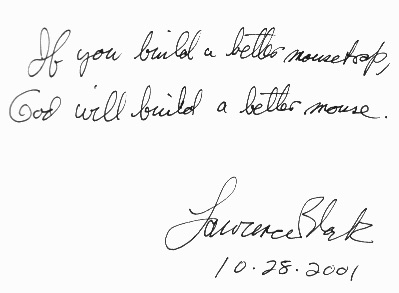 If you build a better mousetrap,
God will build a better mouse.
Lawrence Black
10.28.2001